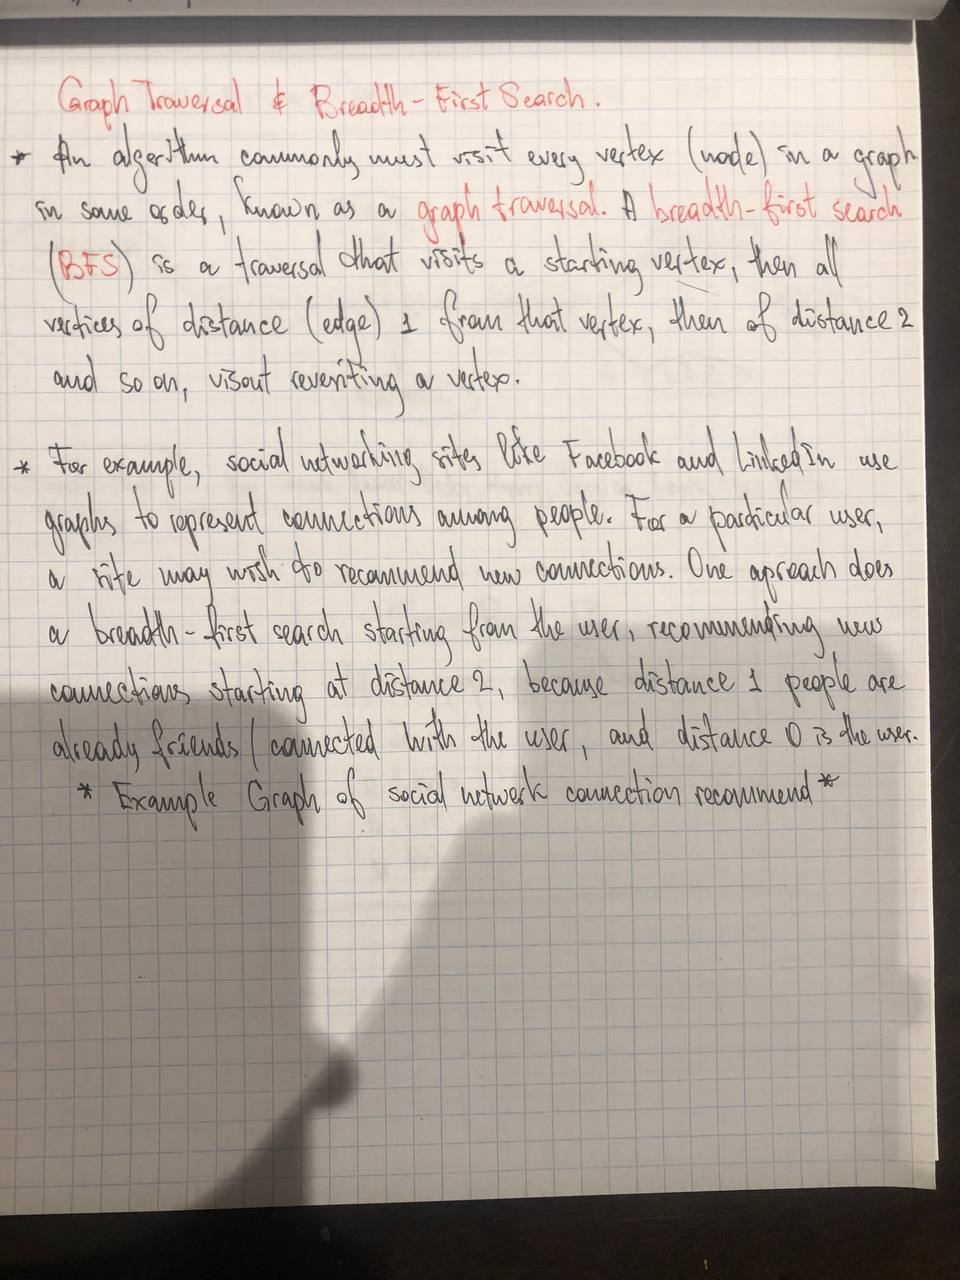 Graph Traversal & Breadth-First Search.
* An algorithm commonly must visit every vertex (node) in a graph
in some order, known as a graph traversal. A breadth-first search
(BFS) is a traversal that visits a starting vertex, then all
vertices of distance (edge) 1 from that vertex, then of distance 2
and so on, visout reveriting a vertex.
* For example, social networking sites like Facebook and LinkedIn use
graphs to represent connections among people. For a particular user,
a site may wish to recommend new connections. One aproach does
a breadth-first search starting from the user, recommending new
connections starting at distance 2, because distance 1 people are
already friends / connected with the user, and distance 0 is the user.
* Example Graph of social network connection recommend *